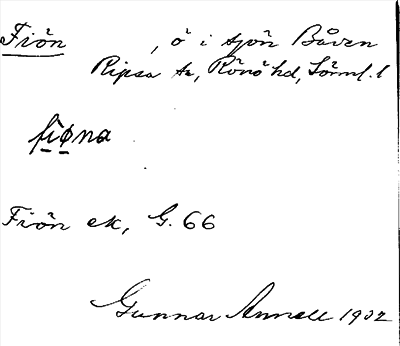 Fiön , ö i sjön Båven
Ripsa sn, Rönö hd, Sörml. l
fi̱ø̱na
Fiön ek, G. 66
Gunnar Annell 1932